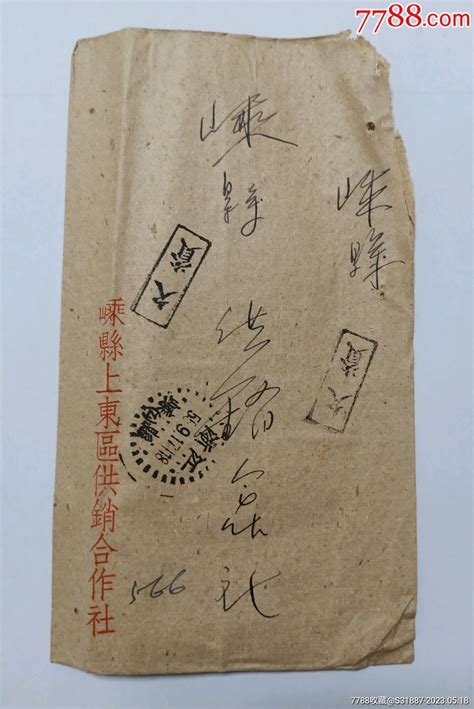 7788.com
嵊縣
嵊縣
供銷合作社
浙江
嵊縣上東區供銷合作社
566
7788收藏@S31887-2023.05.18